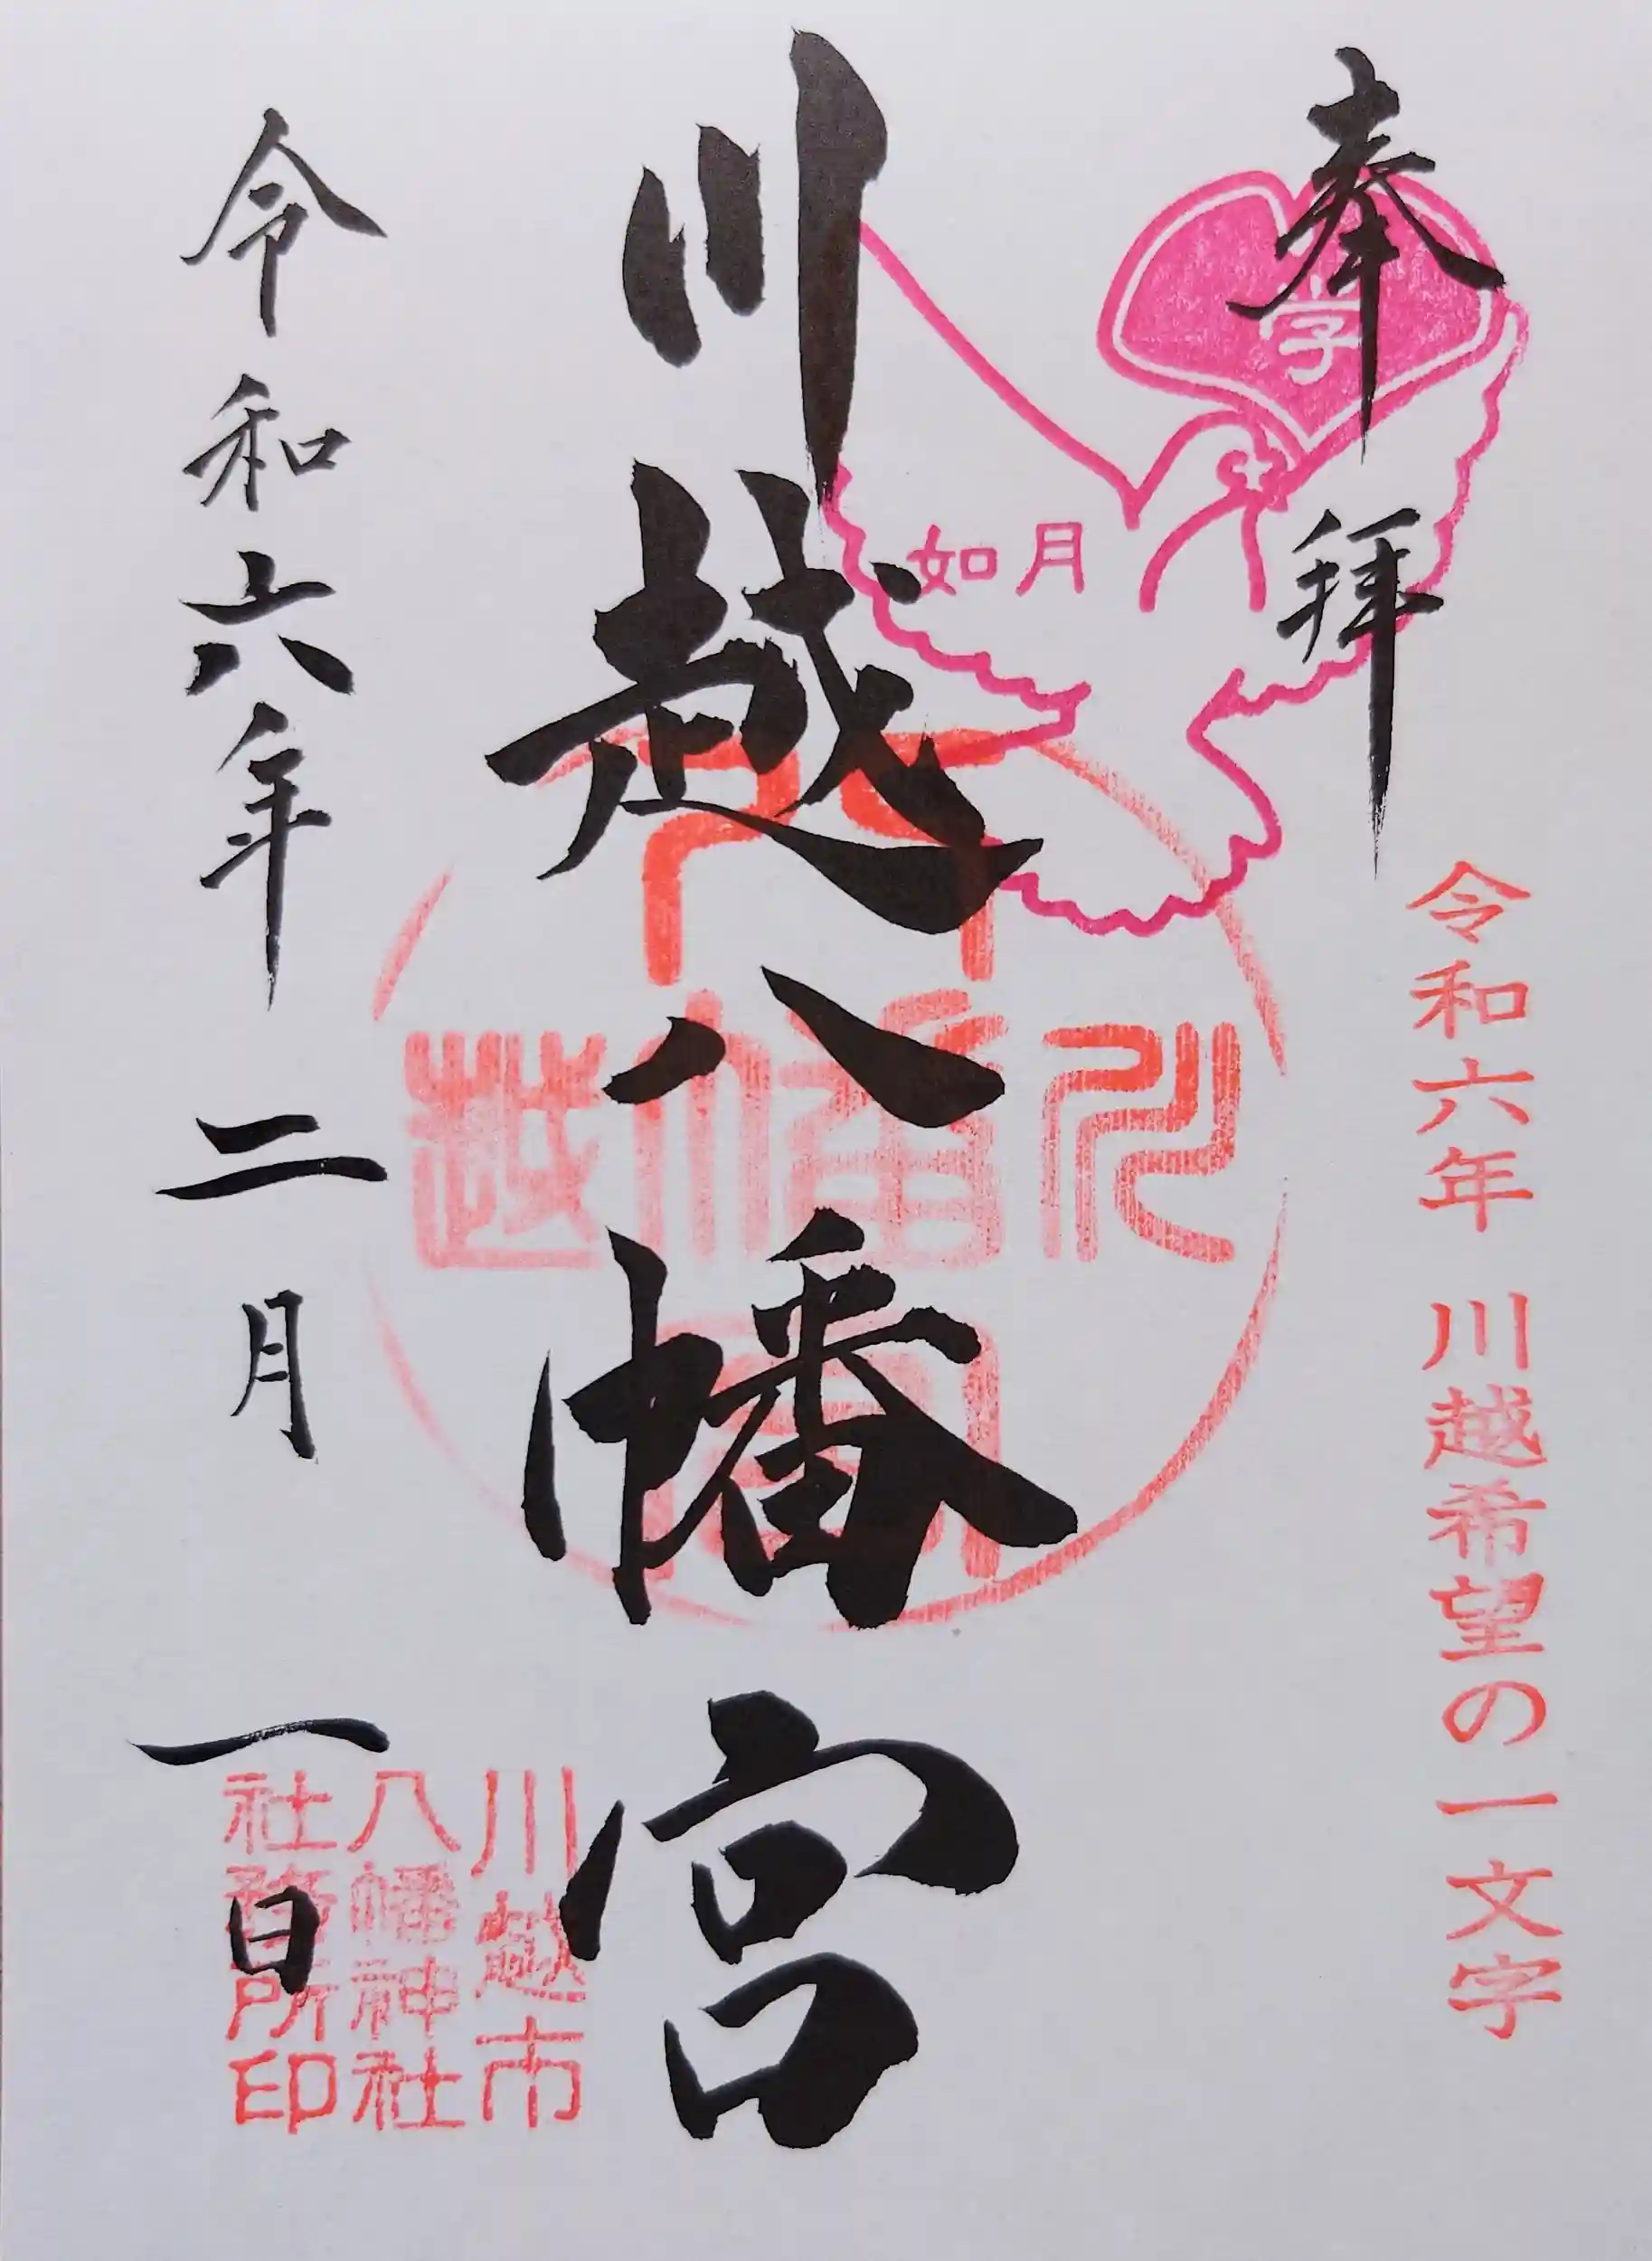 奉拝
学
如月
令和六年 川越希望の一文字
川越八幡宮
川越市
八幡神社
社務所印
令和六年二月一日